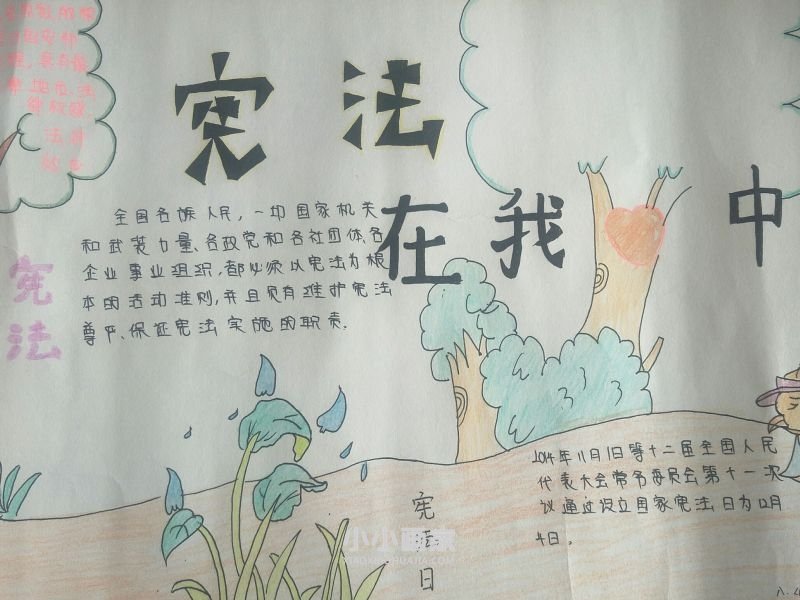 宪法
在我 中
全国各族人民,一切国家机关
和武装力量、各政党和各社团体、各
企业事业组织,都必须以宪法为根
本的活动准则,并且负有维护宪法
尊严、保证宪法实施的职责.
宪法
2014年11月1日第十二届全国人民
代表大会常务委员会第十一次
议通过设立国家宪法日为12月
4日。
宪法日
小小画家